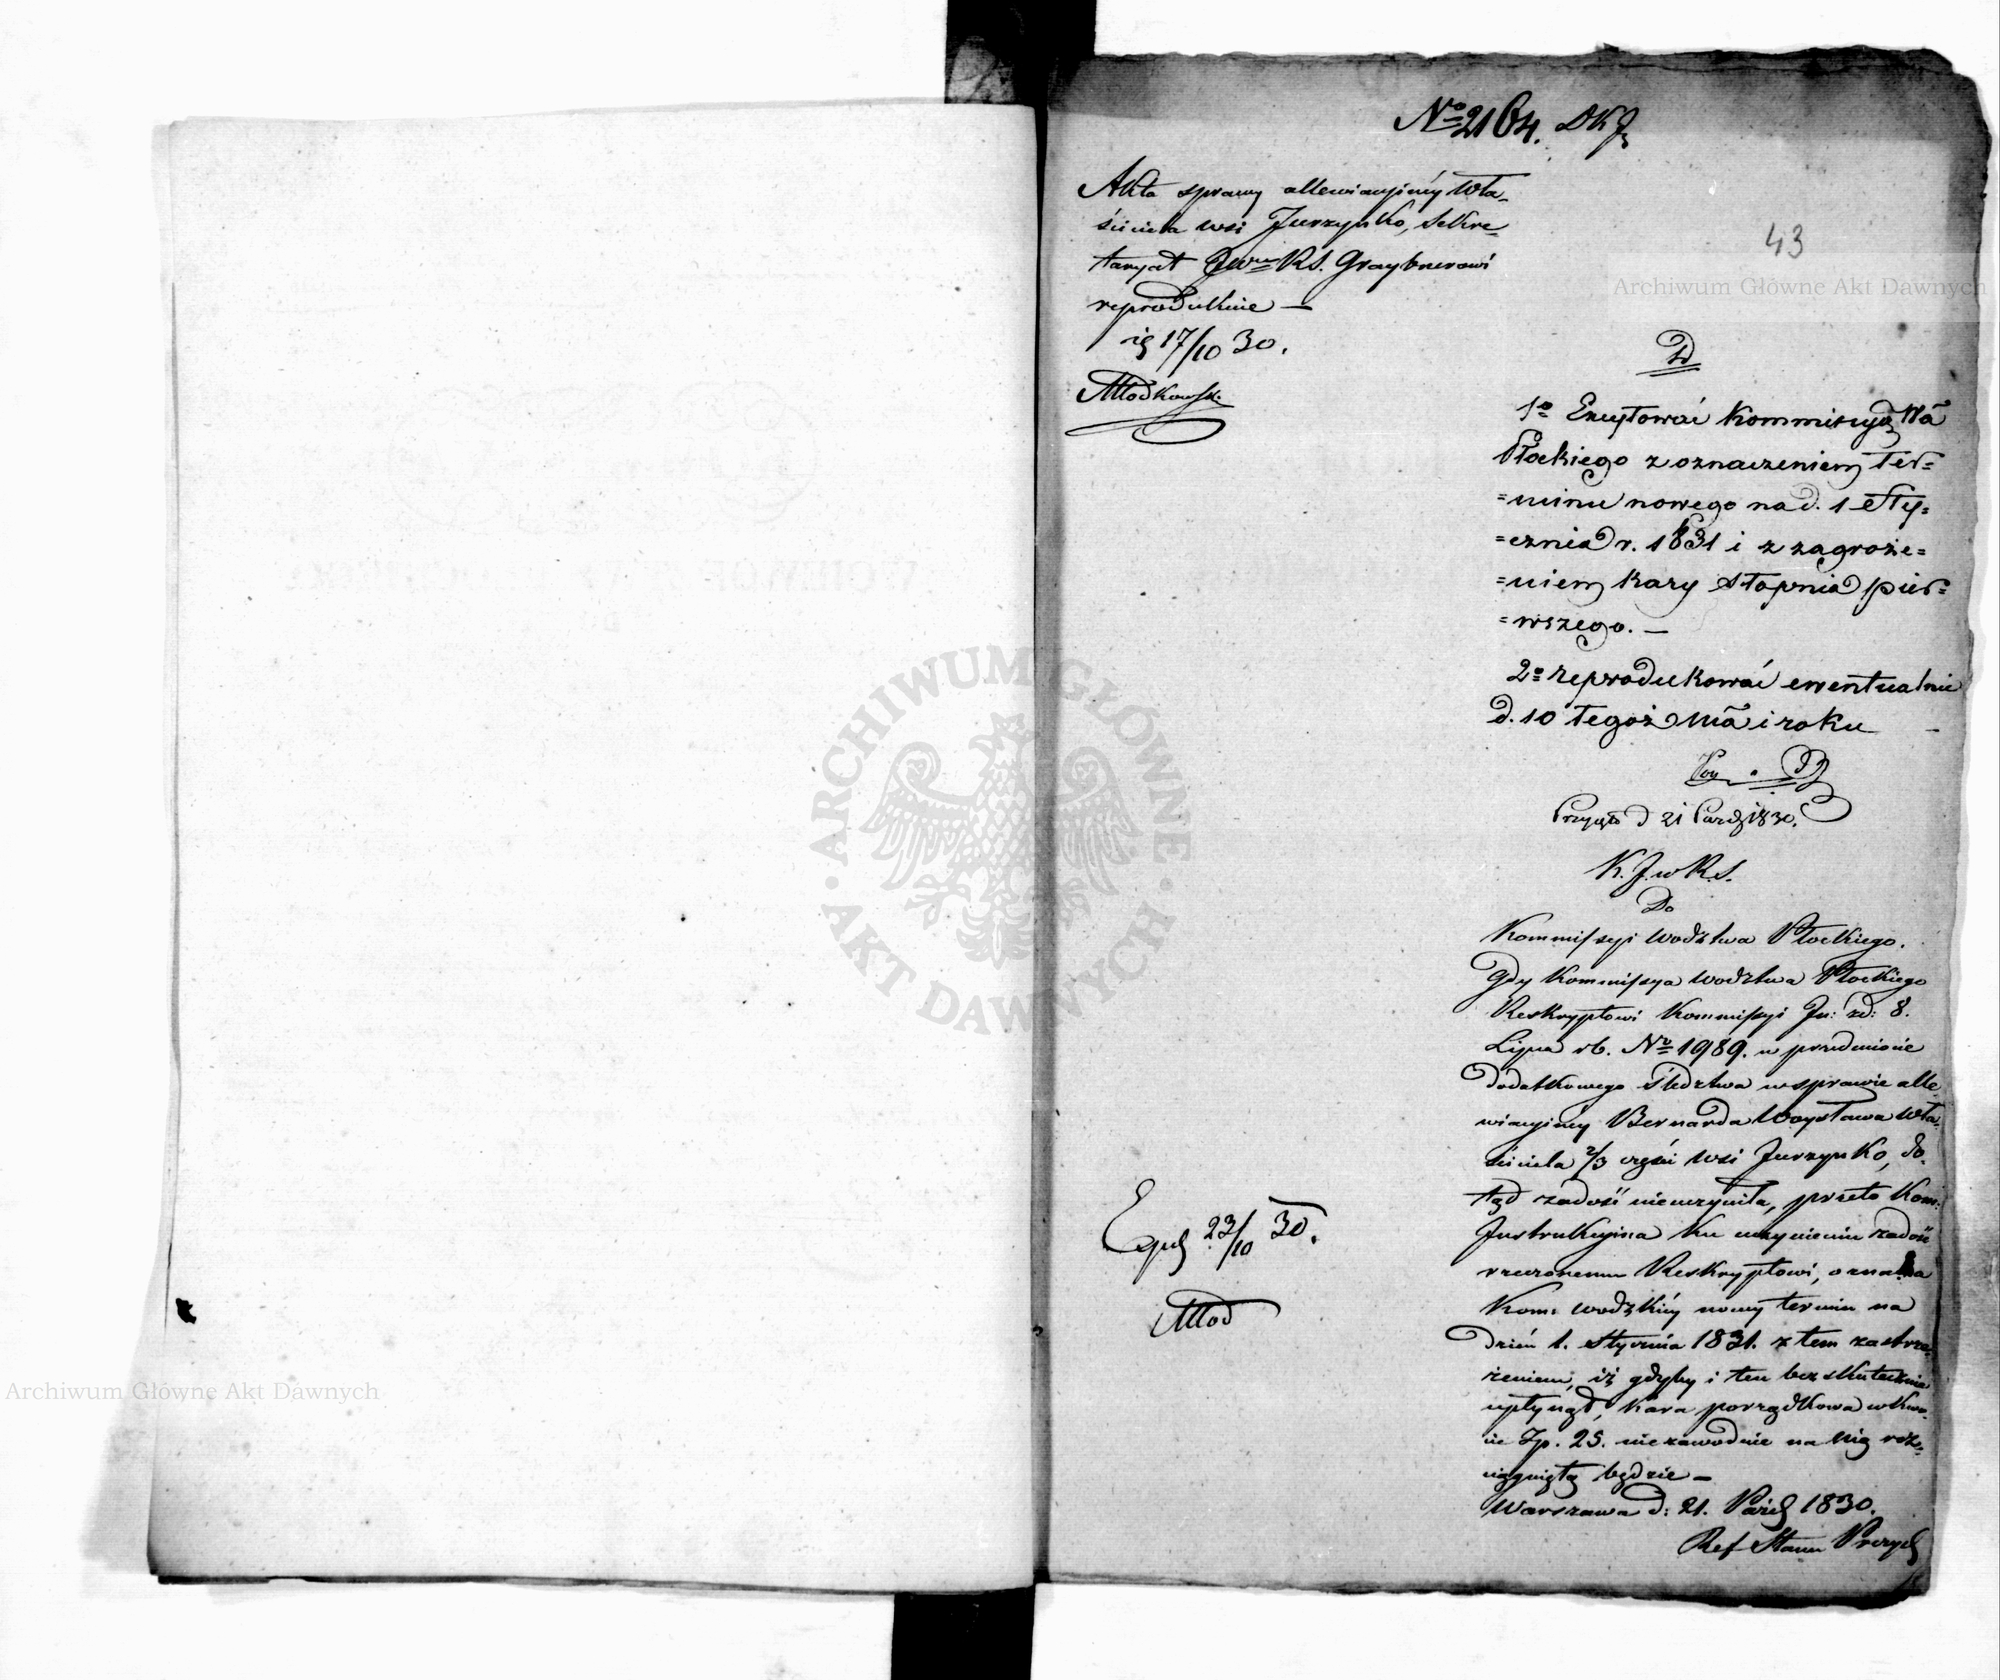 No 2164. DKJ
43
Akta sprawy allewiacyjnéy Wła-
ściciela wsi Jurzynko, Sekre-
taryat JwRS. Graybnerowi
reprodukuie —
17/10 30.
Młodkowski
D
1o Excytować Kommissyą Wā
Płockiego z oznaczeniem ter=
=minu nowego na d. 1 Sty=
=cznia r. 1831 i z zagroże=
=niem kary stopnia pier=
=wszego. —
2o reprodukować ewentualnie
d. 10 tegoż mā i roku —
Przyięto d 21 Paźdz 1830.
K. J. w R. S.
Do
Kommissyi Wodztwa Płockiego.
Gdy Kommissya Wodztwa Płockiego
Reskryptowi Kommissyi In: zd: 8.
Lipca rb. No 1989. w przedmiocie
dodatkowego śledztwa w sprawie alle-
wiacyjnéy Bernarda Woysława Wła-
ściciela 2/3 części wsi Jurzynko, do-
tąd zadość nieuczyniła, przeto Kom:
Instrukcyjna ku uczynieniu zadość
rzeczonemu Reskryptowi, oznacza
Kom: Wodzkiéy nowy termin na
dzień 1. Stycznia 1831. z tem zastrze-
żeniem, iż gdyby i ten bezskutecznie
upłynął, kara porządkowa w kwo-
cie Zp. 25. niezawodnie na nią roz-
ciągniętą będzie —
Warszawa d: 21. Paźd 1830.
Ref Stanu Prezyd
Exped 23/10 30.
Młod
Archiwum Główne Akt Dawnych
Archiwum Główne Akt Dawnych
ARCHIWUM GŁÓWNE AKT DAWNYCH